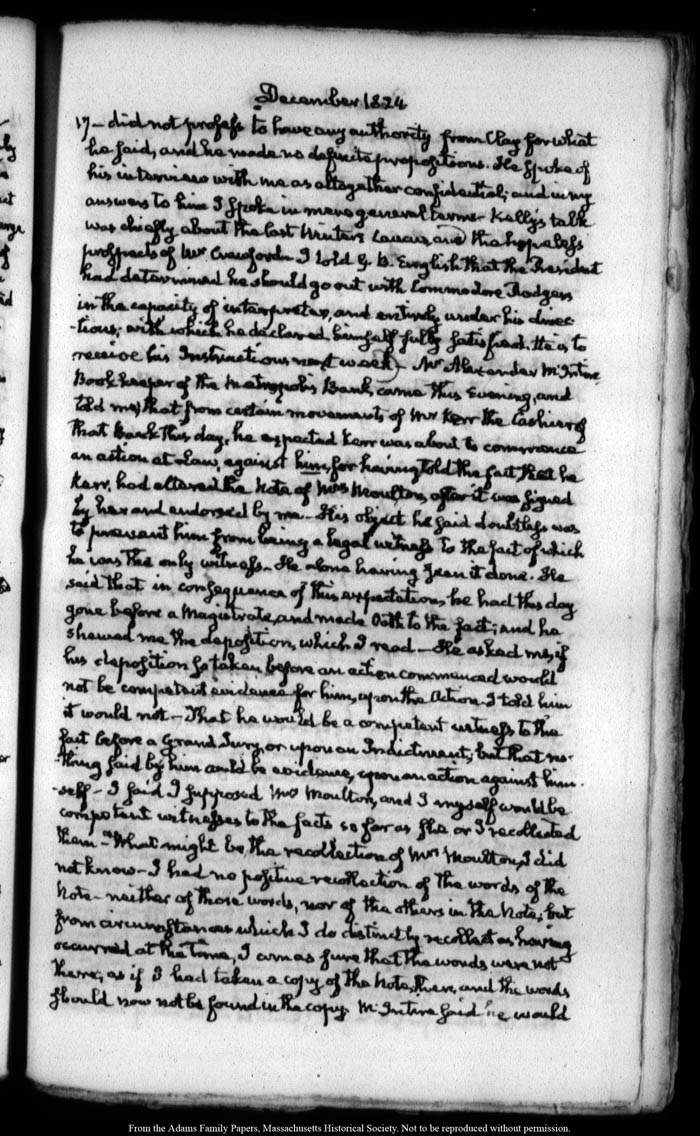 December 1824
17 — did not profess to have any authority from Clay for what
he said, and he made no definite propositions. He spoke of
his interview with me as altogether confidential; and in my
answers to him I spoke in mere general terms — Kelly's talk
was chiefly about the last Winter's Caucus, and the hopeless
prospects of Mr Crawford — I told G. B. English that the President
had determined he should go out with Commodore Rodgers
in the capacity of interpreter, and entirely under his direc-
-tions; with which he declared himself fully satisfied. He is to
receive his Instructions next week — Mr Alexander McIntire
Book keeper of the Metropolis Bank, came this Evening, and
told me, that from certain movements of Mr Kerr the Cashier of
that Bank this day, he expected Kerr was about to commence
an action at Law, against him, for having told the fact that he
Kerr, had altered the Note of Mrs Moulton, after it was signed
by her and endorsed by me — His object he said doubtless was
to prevent him from being a legal witness to the fact of which
he was the only witness — He alone having seen it done. He
said that in consequence of this expectation, he had this day
gone before a Magistrate, and made Oath to the fact; and he
shewed me the deposition, which I read — He asked me, if
his deposition so taken before an action commenced would
not be competent evidence for him, upon the Action — I told him
it would not — That he would be a competent witness to the
fact before a Grand Jury, or upon an Indictment, but that no-
-thing said by him could be evidence, upon an action against him-
-self — I said I supposed Mrs Moulton, and I myself would be
competent witnesses to the facts so far as she or I recollected
them — What might be the recollection of Mrs Moulton, I did
not know — I had no positive recollection of the words of the
Note — neither of those words, nor of the others in the Note; but
from circumstances which I do distinctly recollect as having
occurred at the time, I am as sure that the words were not
there, as if I had taken a copy of the Note, then, and the words
should now not be found in the copy. McIntire said he would
From the Adams Family Papers, Massachusetts Historical Society. Not to be reproduced without permission.